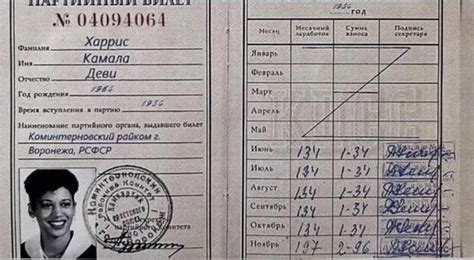 ПАРТИЙНЫЙ БИЛЕТ
№ 04094064
Фамилия Харрис
Имя Камала
Отчество Деви
Год рождения 1964
Время вступления в партию 1984
Наименование партийного органа, выдавшего билет
Коминтерновский райком г.
Воронежа, РСФСР
ГОД
Месяц Месячный заработок Сумма взноса Подпись секретаря
Январь
Февраль
Март
Апрель
Май
Июнь 134 1-34
Июль 134 1-34
Август 134 1-34
Сентябрь 134 1-34
Октябрь 134 1-34
Ноябрь 197 2-96